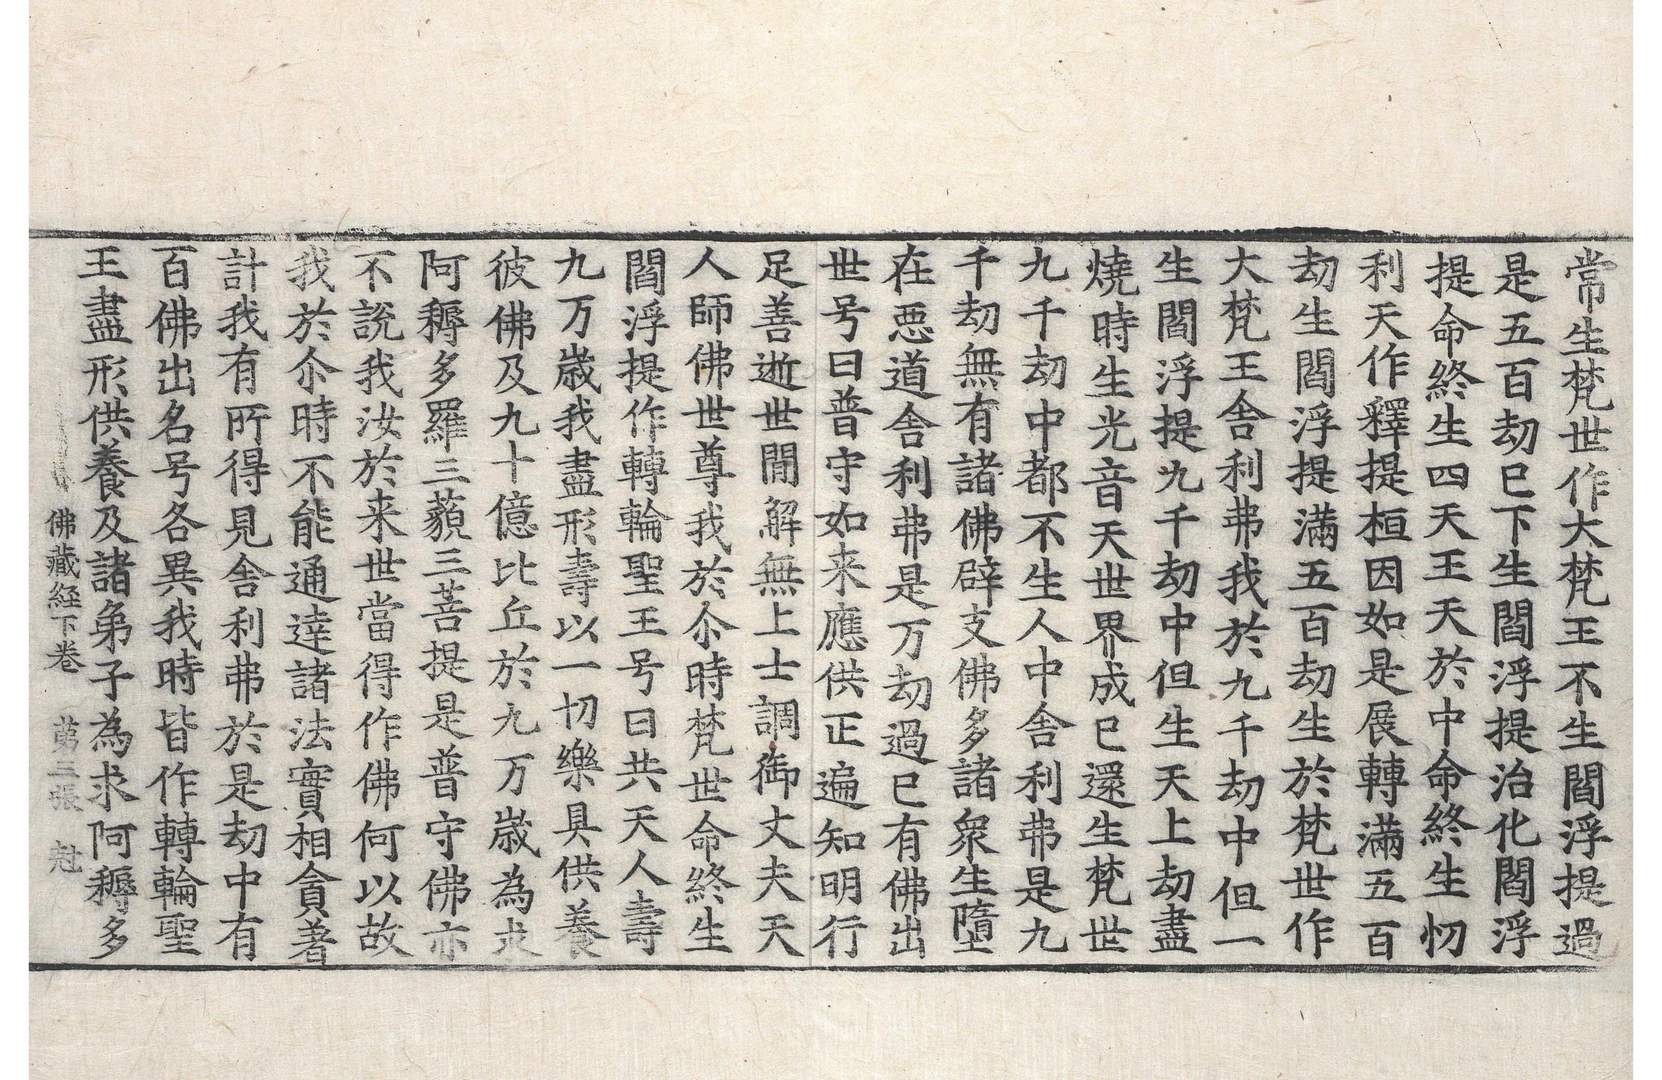 常生梵世作大梵王不生閻浮提過
是五百劫已下生閻浮提治化閻浮
提命終生四天王天於中命終生忉
利天作釋提桓因如是展轉滿五百
劫生閻浮提滿五百劫生於梵世作
大梵王舍利弗我於九千劫中但一
生閻浮提九千劫中但生天上劫盡
燒時生光音天世界成已還生梵世
九千劫中都不生人中舍利弗是九
千劫無有諸佛辟支佛多諸衆生墮
在惡道舍利弗是万劫過已有佛出
世号曰普守如来應供正遍知明行
足善逝世間解無上士調御丈夫天
人師佛世尊我於尒時梵世命終生
閻浮提作轉輪聖王号曰共天人壽
九万歲我盡形壽以一切樂具供養
彼佛及九十億比丘於九万歲為求
阿耨多羅三藐三菩提是普守佛亦
不說我汝於来世當得作佛何以故
我於尒時不能通達諸法實相貪著
計我有所得見舍利弗於是劫中有
百佛出名号各異我時皆作轉輪聖
王盡形供養及諸弟子為求阿耨多
佛藏経下卷 第三張 尅